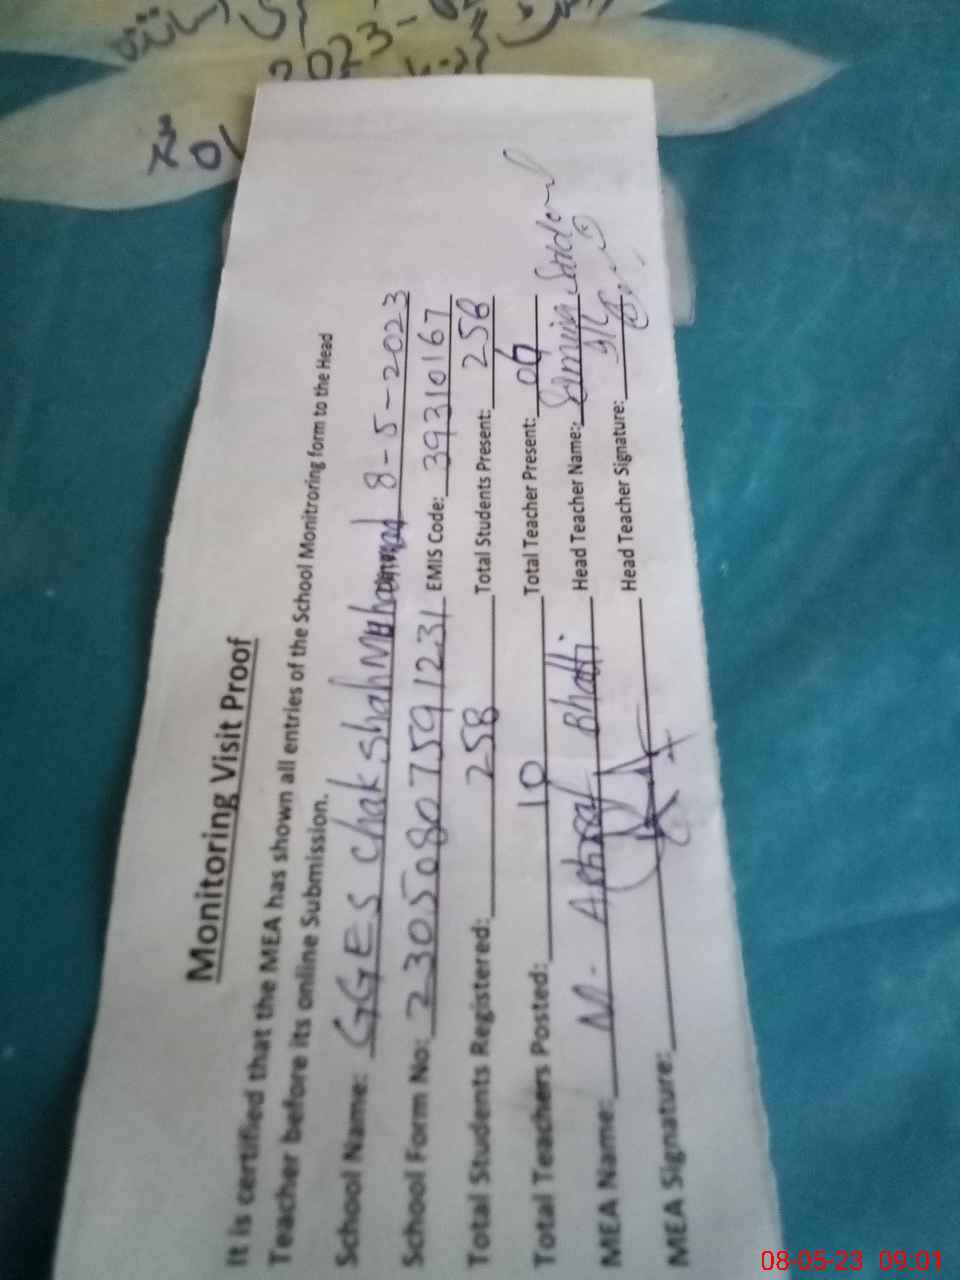 2023-
Monitoring Visit Proof
It is certified that the MEA has shown all entries of the School Monitroring form to the Head
Teacher before its online Submission.
School Name: GGES chak shah Muhammad 8-5-2023
School Form No: 23050807591231 EMIS Code: 39310167
Total Students Registered: 258 Total Students Present: 258
Total Teachers Posted: 10 Total Teacher Present: 06
MEA Name: M. Ashraf Bhatti Head Teacher Name:
MEA Signature: Head Teacher Signature:
08-05-23 09:01